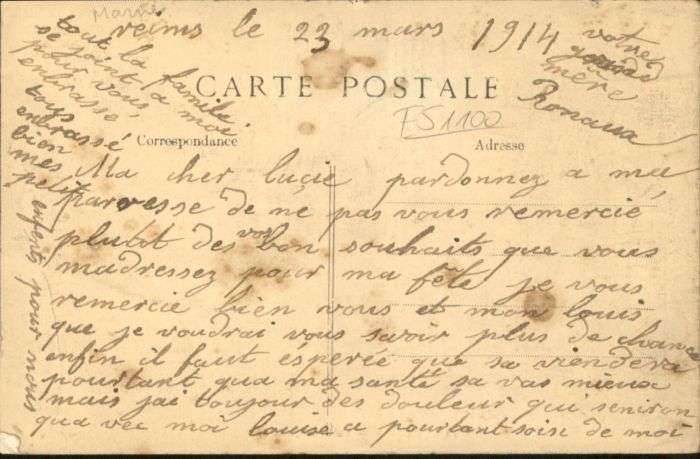 Marne
reims le 23 mars 1914
CARTE POSTALE
FS1100
Correspondance
Adresse
Ma cher lucie pardonnez a ma
parresse de ne pas vous remercié
plutot des vos bon souhaits que vous
madressez pour ma fête je vous
remercie bien vous et mon louis
que je voudrai vous savoir plus de chance
enfin il faut esperée que sa viendera
pourtant qua ma santé sa vas mieux
mais jai toujour des douleur qui seniron
qua vec moi louise a pourtant soin de moi
tout la famille
se joint a moi
pour vous
embrassé
tous
embrassé
bien
mes
petit
enfants pour nous
votre
grande
mère